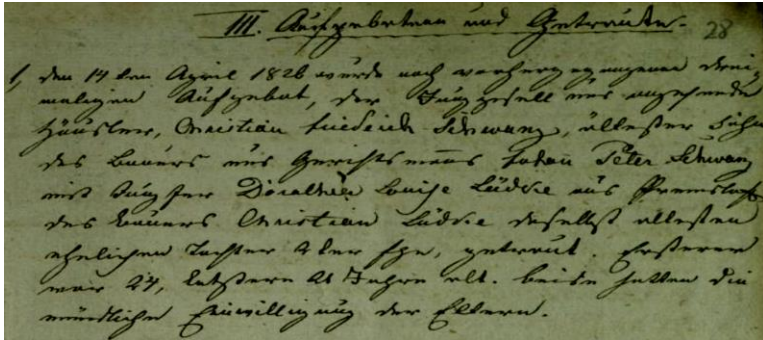 III. Aufgebotene und Getraute. 28
1, den 14ten April 1826 wurde nach vorhergegangenem drei-
maligen Aufgebot, der Junggesell und angehende
Häusler, Christian Friedrich Schwanz, ältester Sohn
des Bauers und Gerichtsmanns Johan Peter Schwanz
mit Jungfer Dorothea Louise Lüdke aus
des Bauers Christian Lüdke daselbst ältesten
ehelichen Tochter 2ter Ehe, getraut. Ersterer
war 24, letztere 21 Jahre alt. beide hatten die
mündliche Einwilligung der Eltern.